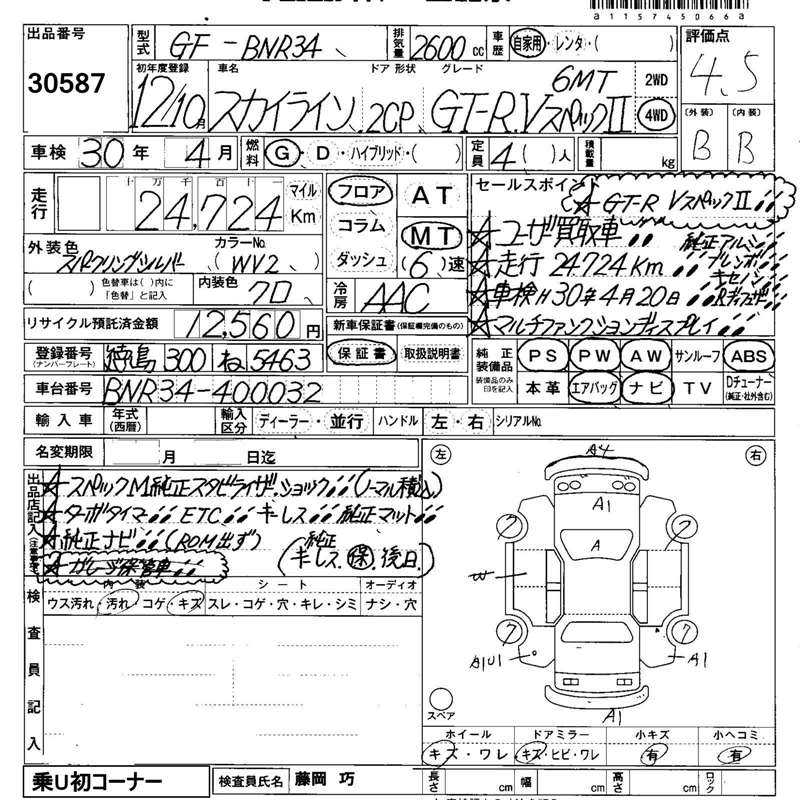 a1157450066a
出品番号 30587
型式 GF-BNR34 排気量 2600 cc 車歴 自家用・レンタ・( )
評価点 4.5
初年度登録 車名 ドア 形状 グレード
12/10月 スカイライン 2CP. GT-R.VスペックⅡ 6MT 2WD 4WD
〔外装〕 B 〔内装〕 B
車検 30年 4月 燃料 G・D・ハイブリッド・( ) 定員 4( )人 積載量 kg
走行 十万千百十一
24,724 マイル Km
フロア コラム ダッシュ AT MT (6)速
セールスポイント
☆GT-R VスペックⅡ!!
☆ユーザ買取車!! 純正アルミ!!
☆走行24.724Km!! ブレンボ!!
キセノン!!
☆車検H30年4月20日!! Rデュフザ!!
☆マルチファンクションディスプレイ!!
外装色 スパークリングシルバー カラーNo. (WV2)
( ) 色替車は( )内に「色替」と記入 内装色 クロ
冷房 AAC
リサイクル預託済金額 12,560円
新車保証書(保証欄完備のもの)
保証書 取扱説明書
登録番号 (ナンバープレート) 徳島 300 ね 5463
車台番号 BNR34-400032
純正装備品 装備品のみ印を記入 PS PW AW サンルーフ ABS
本革 エアバッグ ナビ TV Dチューナー (純正・社外含む)
輸入車 年式(西暦) 輸入区分 ディーラー・並行 ハンドル 左・右 シリアルNo.
名変期限 月 日迄
出品店記入(注意事項)
☆スペックM純正スタビライザ.ショック!!(ノーマル積込)
☆ターボタイマ!! ETC!! キーレス!! 純正マット!!
☆純正ナビ!!(ROM出ず) (純正キーレス.保.後日)
☆ガレージ保管車!!
内装 シート オーディオ
ウス汚れ・汚れ・コゲ・キズ スレ・コゲ・穴・キレ・シミ ナシ・穴
検査員記入
左 右
A4
A1
ワ ワ
A
W
ワ ワ
A1U1 A1
A1
スペア
ホイール ドアミラー 小キズ 小ヘコミ
キズ・ワレ キズ・ヒビ・ワレ 有 有
乗U初コーナー 検査員氏名 藤岡 巧 長さ cm 幅 cm 高さ cm ロック